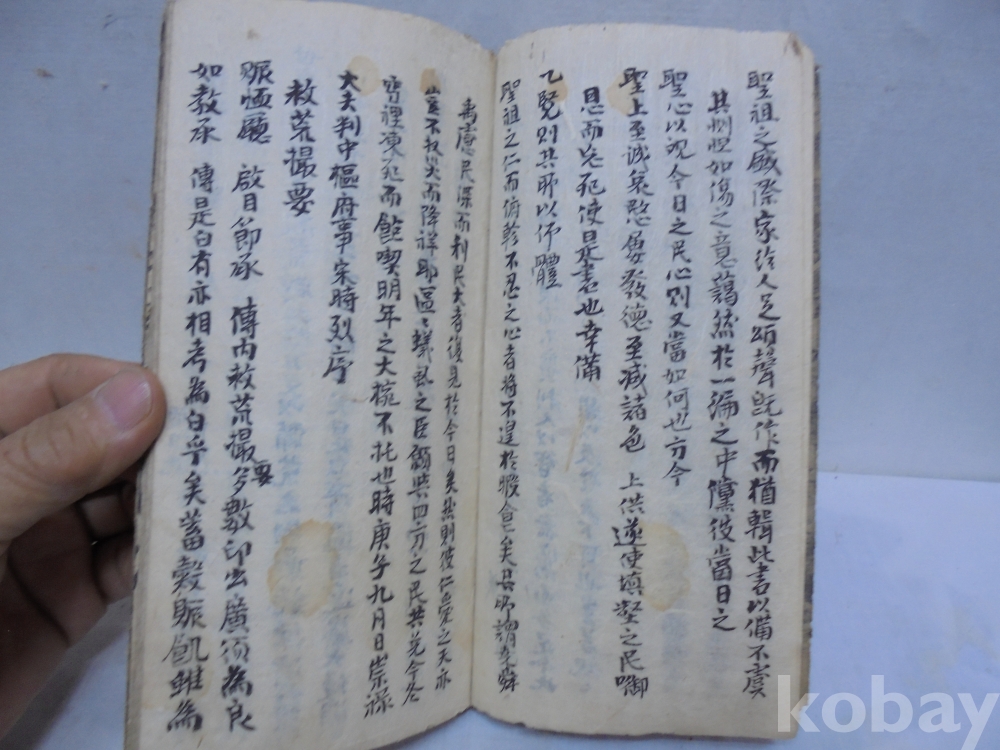 聖祖之盛際家給人足頌聲旣作而猶輯此書以備不虞
其惻怛如傷之意藹然於一編之中儻彼當日之
聖心以視今日之民心則又當如何也方今
聖上至誠哀愍屢發德至減諸色 上供遂使塡壑之民啣
恩而死使是書也幸備
乙覽則其所以仰體
聖祖之仁而俯軫不忍之心者將不遑於暇食矣其所謂堯舜
禹憂民深而利民大者復見於今日矣然則彼仁愛之天亦
豈不捄灾而降祥耶區〻螻蟻之臣願與四方之民共免今冬
窖裡凍死而飽喫明年之大椀不托也時庚子九月日崇祿
大夫判中樞府事宋時烈序
救荒撮要
賑恤廳 啟目節承 傳內救荒撮要多數印出廣頒爲良
如敎承 傳是白有亦相考爲白乎矣蓄穀賑飢雖爲
kobay